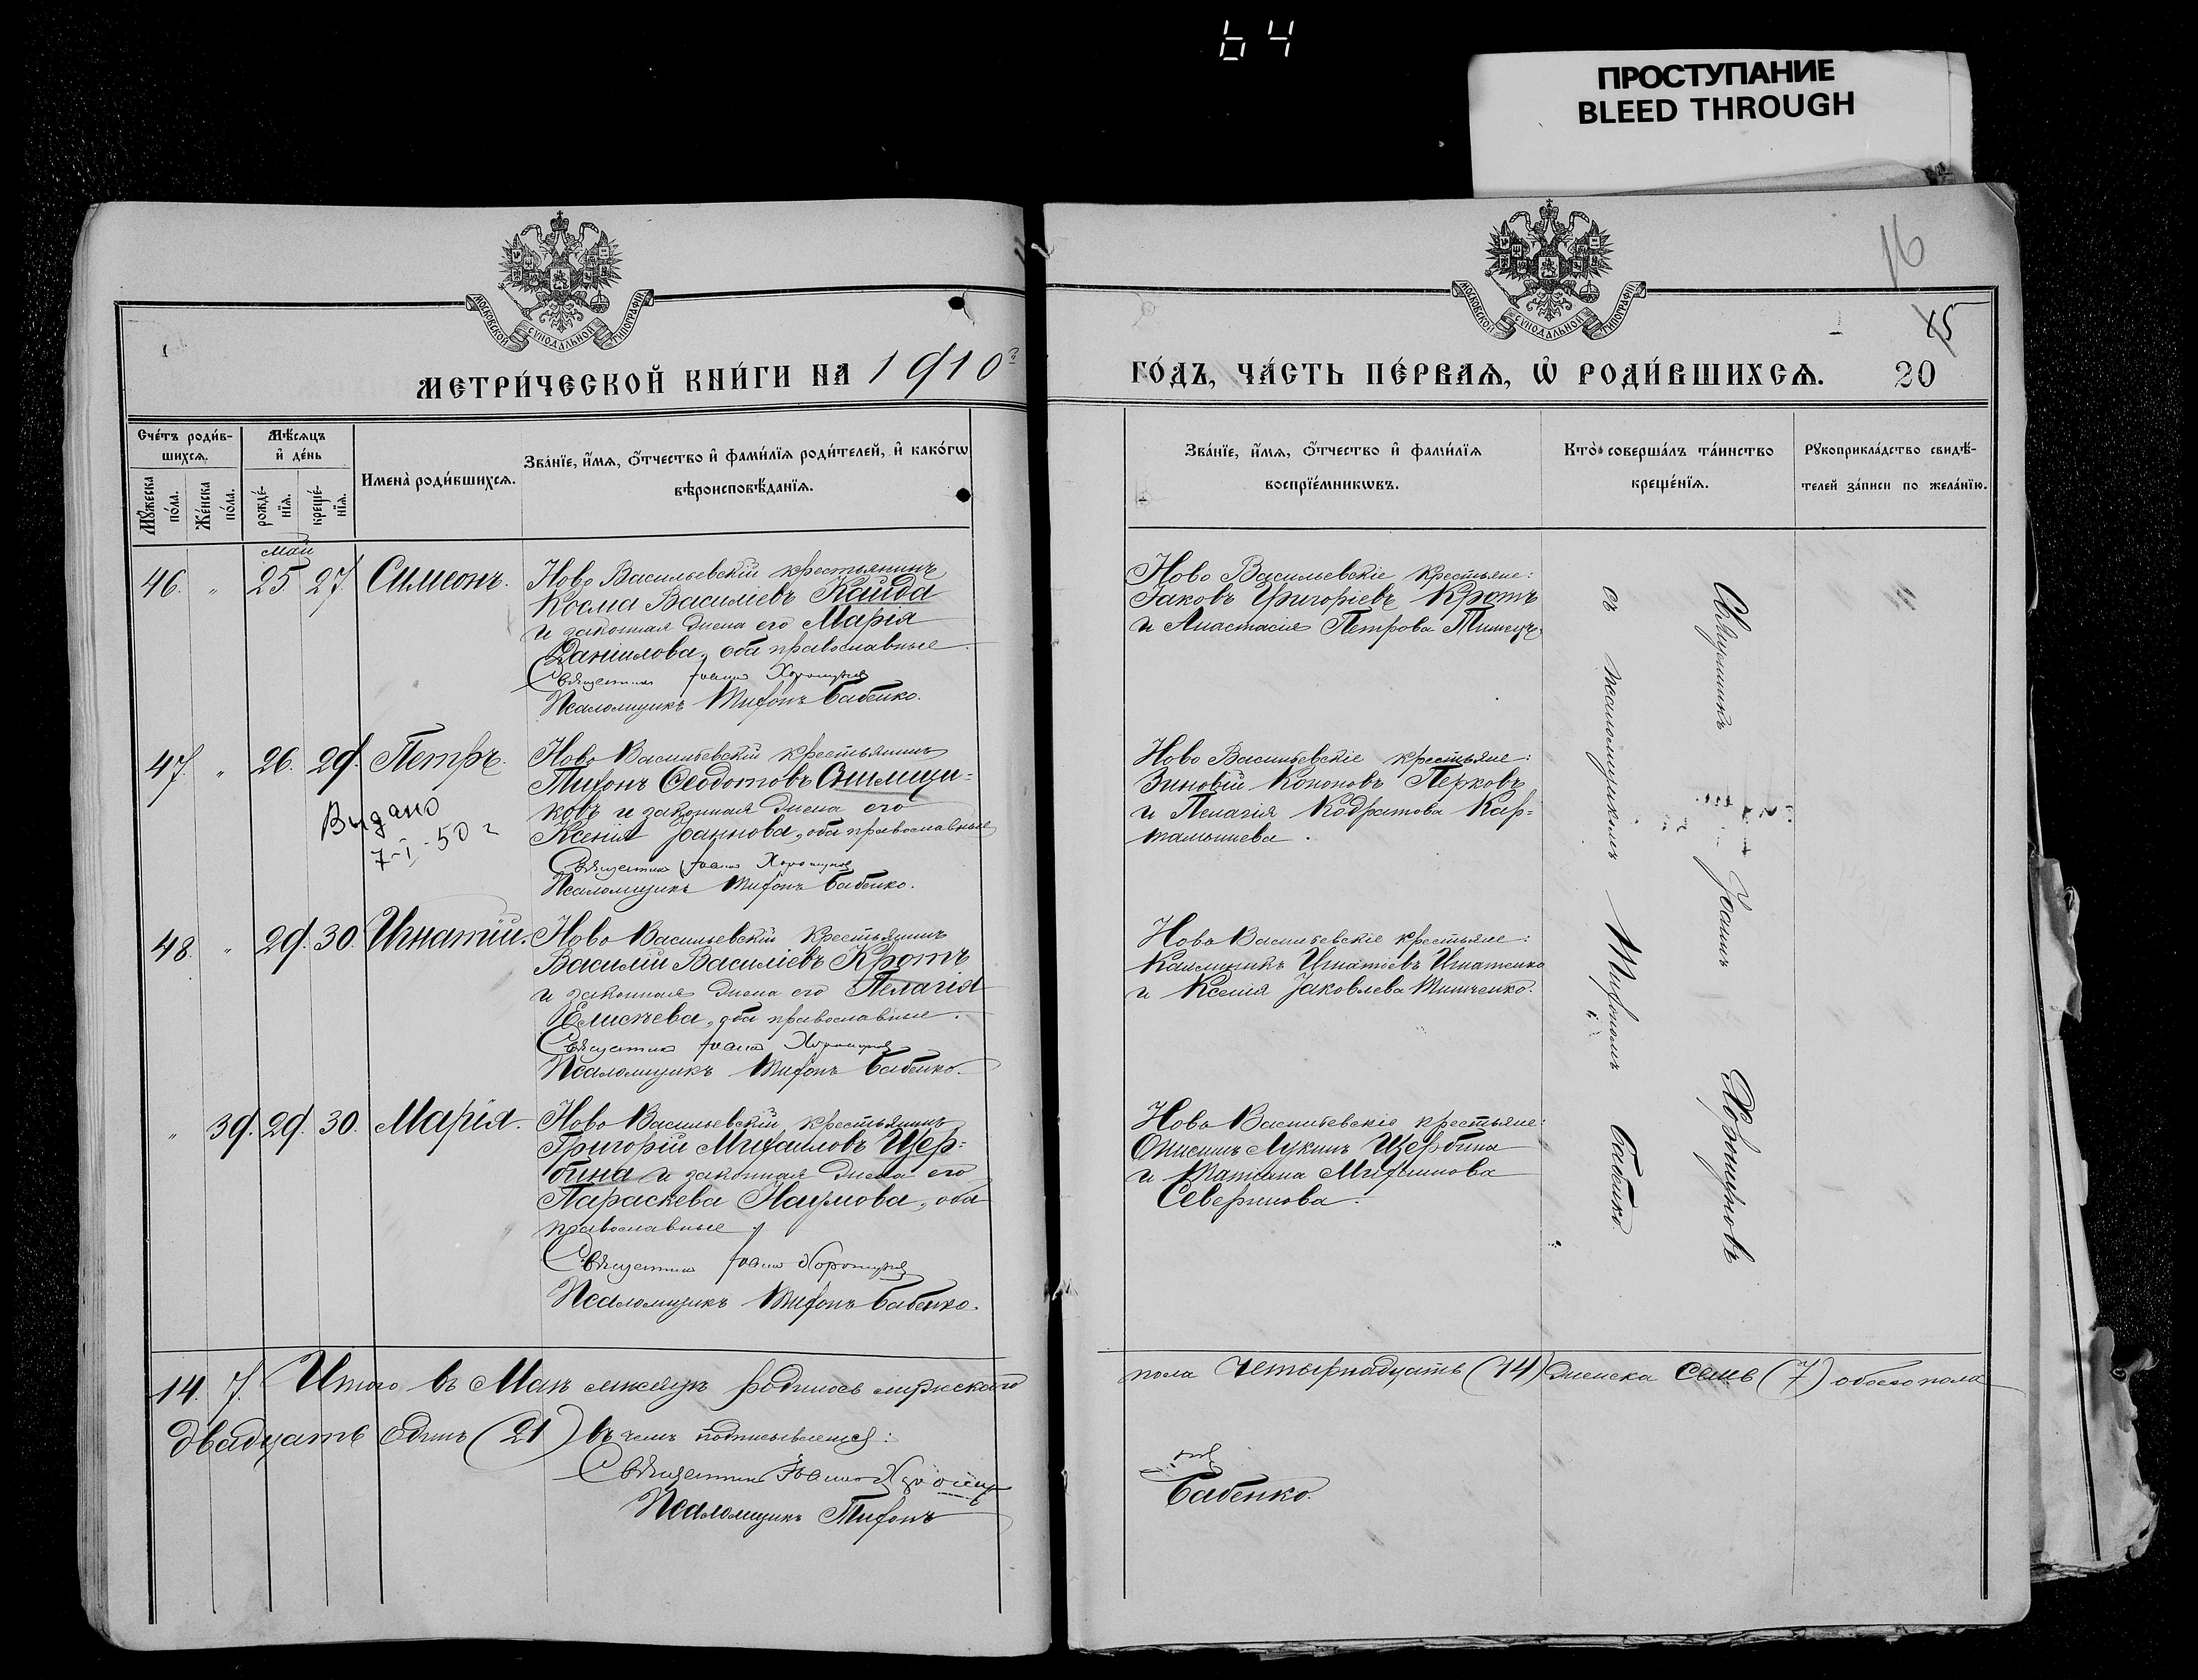 64
ПРОСТУПАНИЕ
BLEED THROUGH
16
15
МОСКОВСКОЙ СѴНОДАЛЬНОЙ ТИПОГРАФІИ
МОСКОВСКОЙ СѴНОДАЛЬНОЙ ТИПОГРАФІИ
МЕТРИ́ЧЕСКОЙ КНИ́ГИ НА 1910 г
ГО́ДЪ, ЧА́СТЬ ПЕ́РВАѦ, Ѽ РОДИ́ВШИХСѦ. 20
Сче́тъ роди́в-
шихсѧ.
Мѣ́сѧцъ
и҆ де́нь
Мꙋ́жеска
по́ла.
Же́нска
по́ла.
рожде́-
нїѧ.
креще́-
нїѧ.
Имена̀ роди́вшихсѧ.
Зва́нїе, и҆́мѧ, ѻ҆́тчество и҆ фами́лїѧ роди́телей, и҆ како́гѡ
вѣроисповѣ́данїѧ.
Зва́нїе, и҆́мѧ, ѻ҆́тчество и҆ фами́лїѧ
воспрїе́мникѡвъ.
Кто̀ соверша́лъ та́инство
креще́нїѧ.
Рꙋкоприкла́дство свидѣ́-
телей за́писи по жела́нїю.
Май
46. " 25. 27. Симеонъ.
Ново Васильевскій крестьянинъ
Косма Василіевъ Кайда
и законная жена его Марія
Даниилова, оба православные.
Священникъ Іоаннъ Хорошуновъ
Псаломщикъ Тифонъ Бабенко.
Ново Васильевскіе крестьяне:
Іаковъ Григоріевъ Кротъ
и Анастасія Петрова
47. " 26. 29. Петръ.
Видано
7-I-50 г
Ново Васильевскій крестьянинъ
Тифонъ Ѳеодотовъ
ковъ и законная жена его
Ксенія Іоаннова, оба православные
Священникъ Іоаннъ Хорошуновъ
Псаломщикъ Тифонъ Бабенко.
Ново Васильевскіе крестьяне:
Зиновій Кононовъ Перковъ
и Пелагія Кодратова Кар-
тамышева.
48. " 29. 30. Игнатій.
Ново Васильевскій крестьянинъ
Василій Василіевъ Кротъ
и законная жена его Пелагія
Елисѣева, оба православные.
Священникъ Іоаннъ Хорошуновъ
Псаломщикъ Тифонъ Бабенко.
Ново Васильевскіе крестьяне:
Игнатіевъ Игнатенко
и Ксенія Іаковлева Тимченко.
" 39. 29. 30. Марія.
Ново Васильевскій крестьянинъ
Григорій Михаиловъ Щер-
бина и законная жена его
Параскева Наумова, оба
православные.
Священникъ Іоаннъ Хорошуновъ
Псаломщикъ Тифонъ Бабенко.
Ново Васильевскіе крестьяне:
Онисимъ Лукинъ Щербина
и Татіана Михаилова
Северинова.
Священникъ Іоаннъ Хорошуновъ
съ псаломщикомъ Тифономъ Бабенко.
14. 7. Итого въ Маѣ мѣсяцѣ родилось мужескаго
пола четырнадцать (14) женска семь (7) обоего пола
двадцать одинъ (21) въ чемъ подписываемся:
Священникъ Іоаннъ Хорошуновъ
Псаломщикъ Тифонъ
Бабенко.